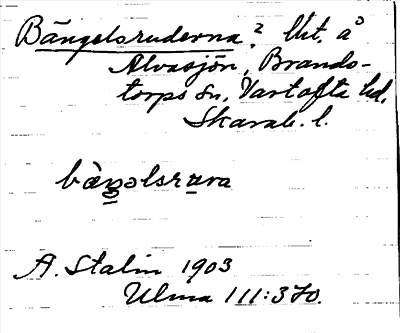 Bängelsruderna? Utt. å
Alvasjön, Brands-
torps sn, Vartofta hd.
Skarab. l.
bàŋəlsrʉva
A. Stalin 1903
Ulma 111:370.